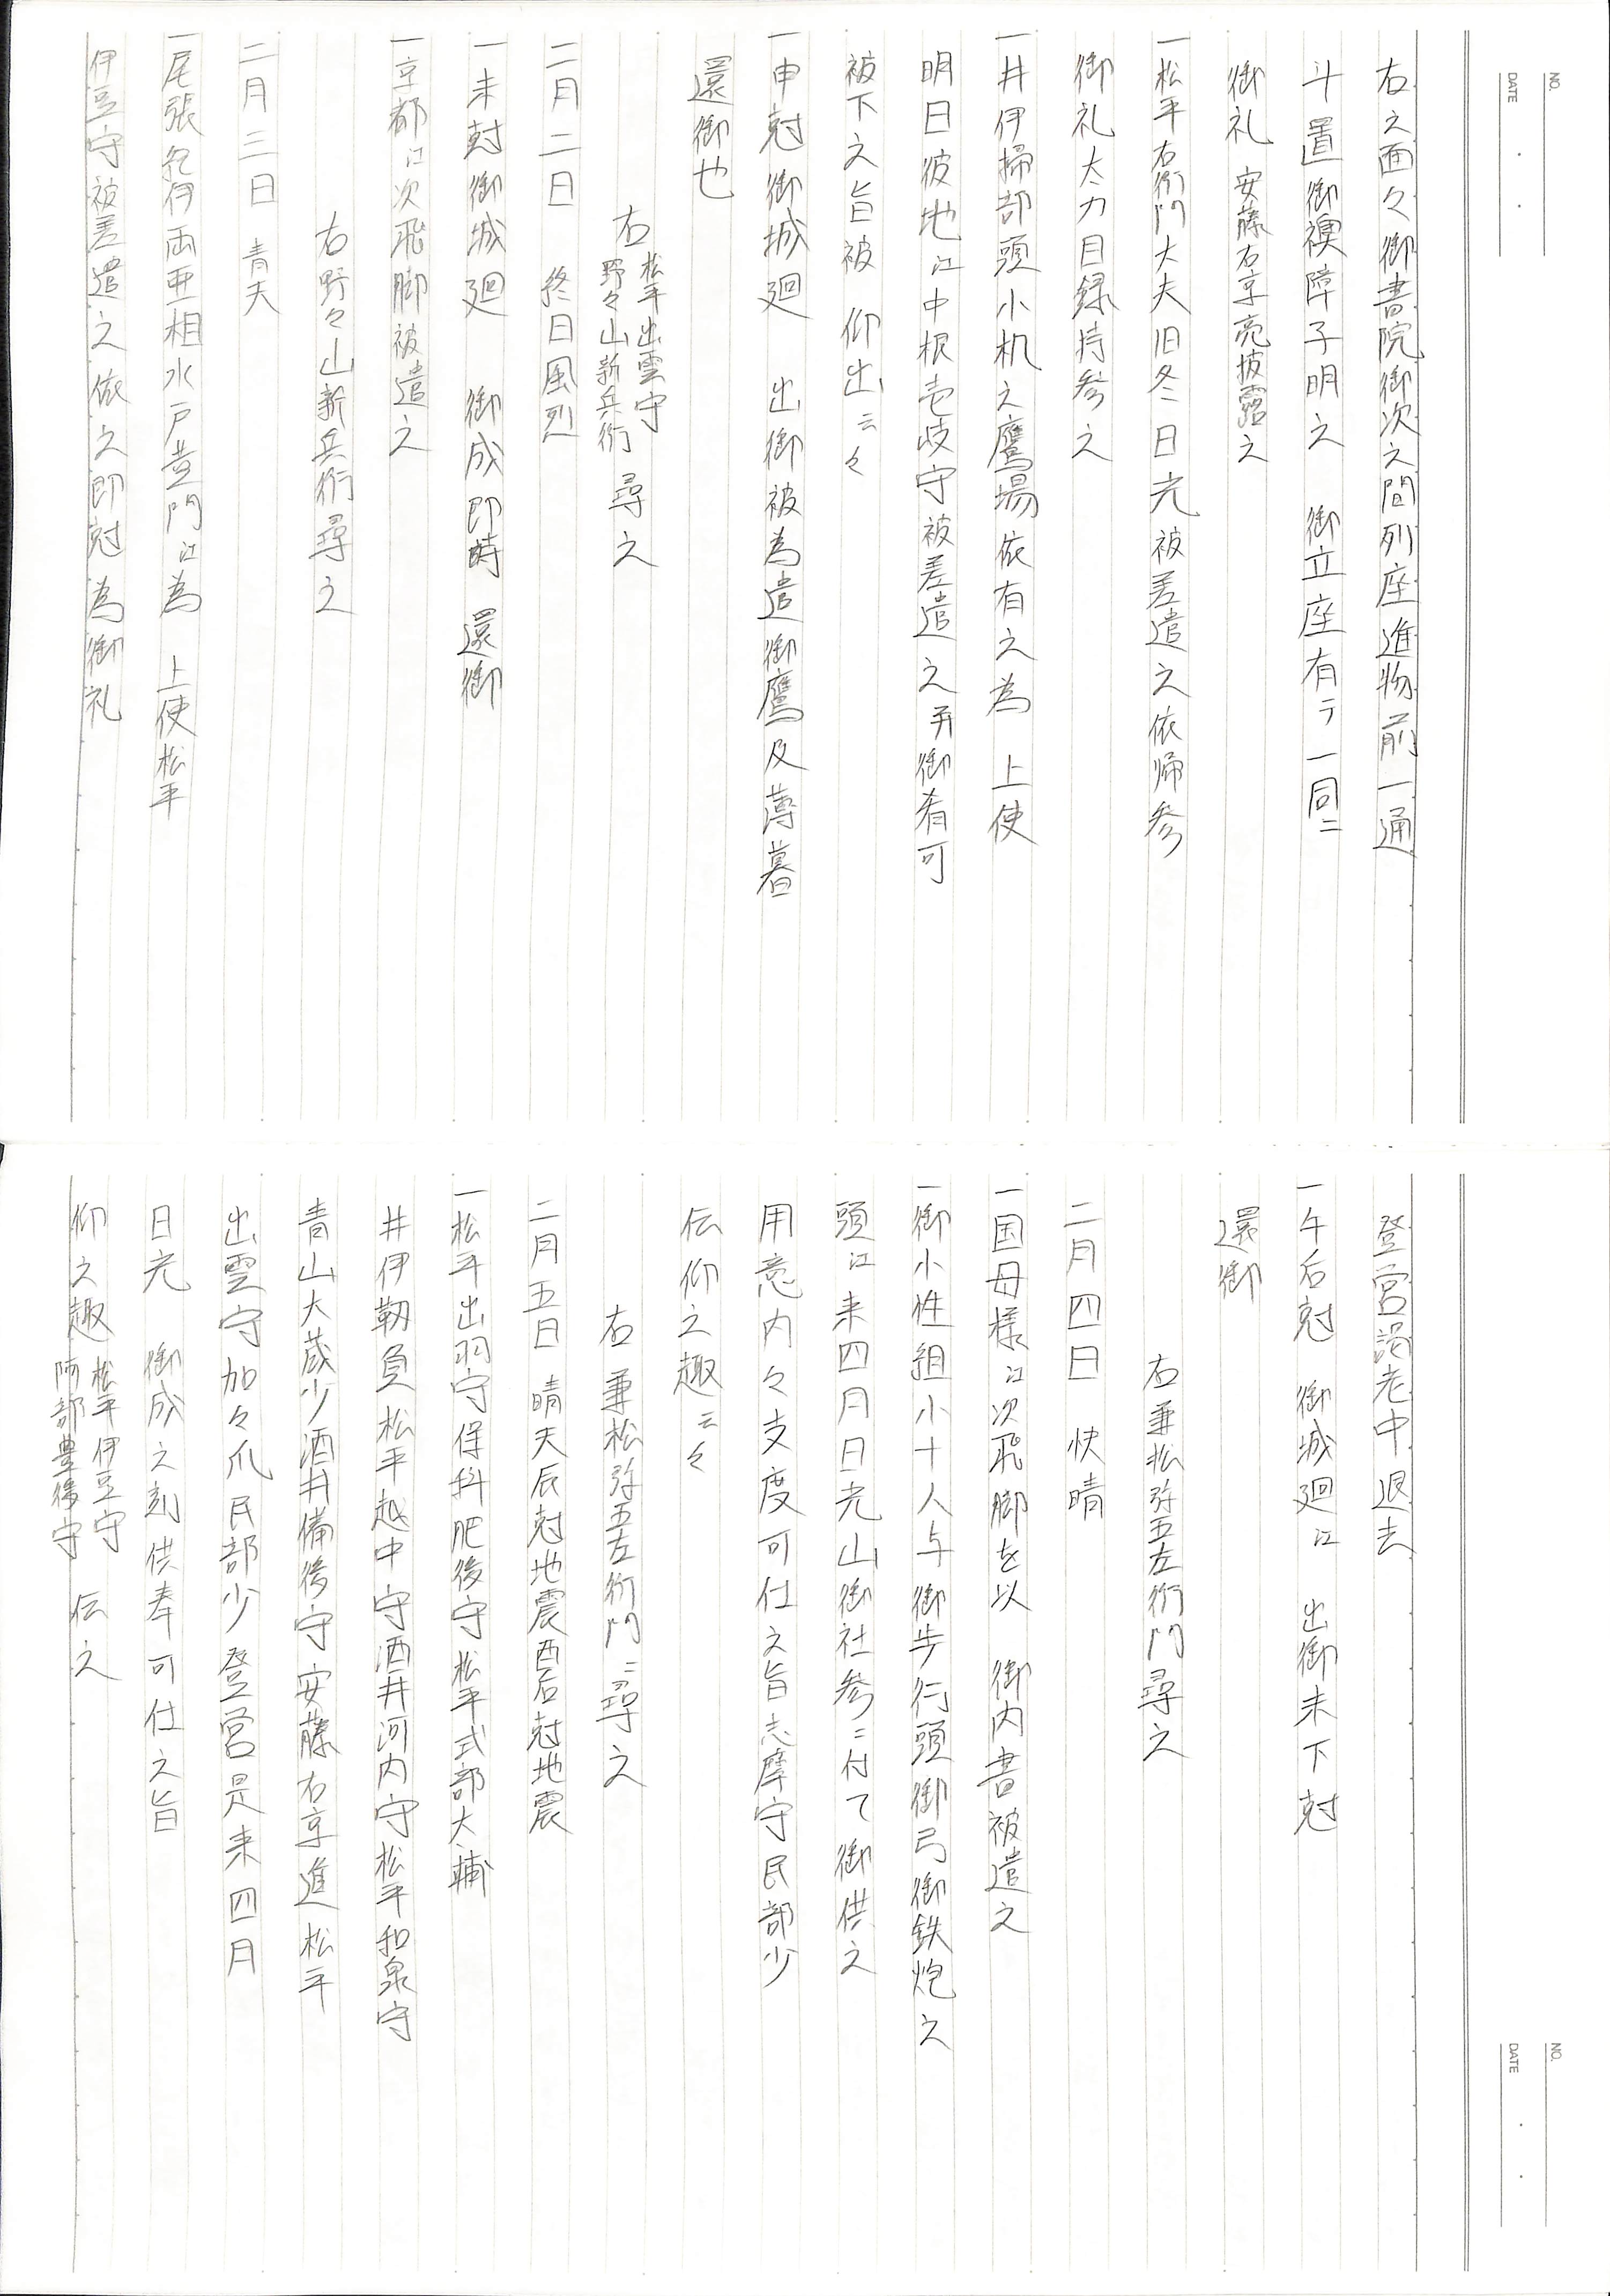 NO.
DATE
右之面々御書院御次之間列座進物前一通
斗置御襖障子明之 御立座有テ一同ニ
御礼 安藤右京亮披露之
一松平右衛門大夫旧冬日光被差遣之依帰参
御礼太刀目録持参之
一井伊掃部頭小机之鷹場依有之為 上使
明日彼地江中根壱岐守被差遣之并御肴可
被下之旨被 仰出云々
一申刻御城廻 出御被為遣御鷹及薄暮
還御也
右 松平出雲守
野々山新兵衛 尋之
二月二日 終日風烈
一未刻御城廻 御成即時 還御
一京都江次飛脚被遣之
右野々山新兵衛尋之
二月三日 青天
一尾張紀伊両亜相水戸黄門江為 上使松平
伊豆守被差遣之依之即刻為御礼
NO.
DATE
登営謁老中退去
一午后刻 御城廻江 出御未下刻
還御
右兼松弥五左衛門尋之
二月四日 快晴
一国母様江次飛脚を以 御内書被遣之
一御小性組小十人与御歩行頭御弓御鉄炮之
頭江来四月日光山御社参ニ付て御供之
用意内々支度可仕之旨志摩守民部少
伝仰之趣云々
右 兼松弥五左衛門ニ尋之
二月五日 晴天辰刻地震酉后刻地震
一松平出羽守保科肥後守松平式部大輔
井伊靱負松平越中守酒井河内守松平和泉守
青山大蔵少酒井備後守安藤右京進松平
出雲守加々爪民部少登営是来四月
日光 御成之刻供奉可仕之旨
仰之趣 松平伊豆守
阿部豊後守 伝之